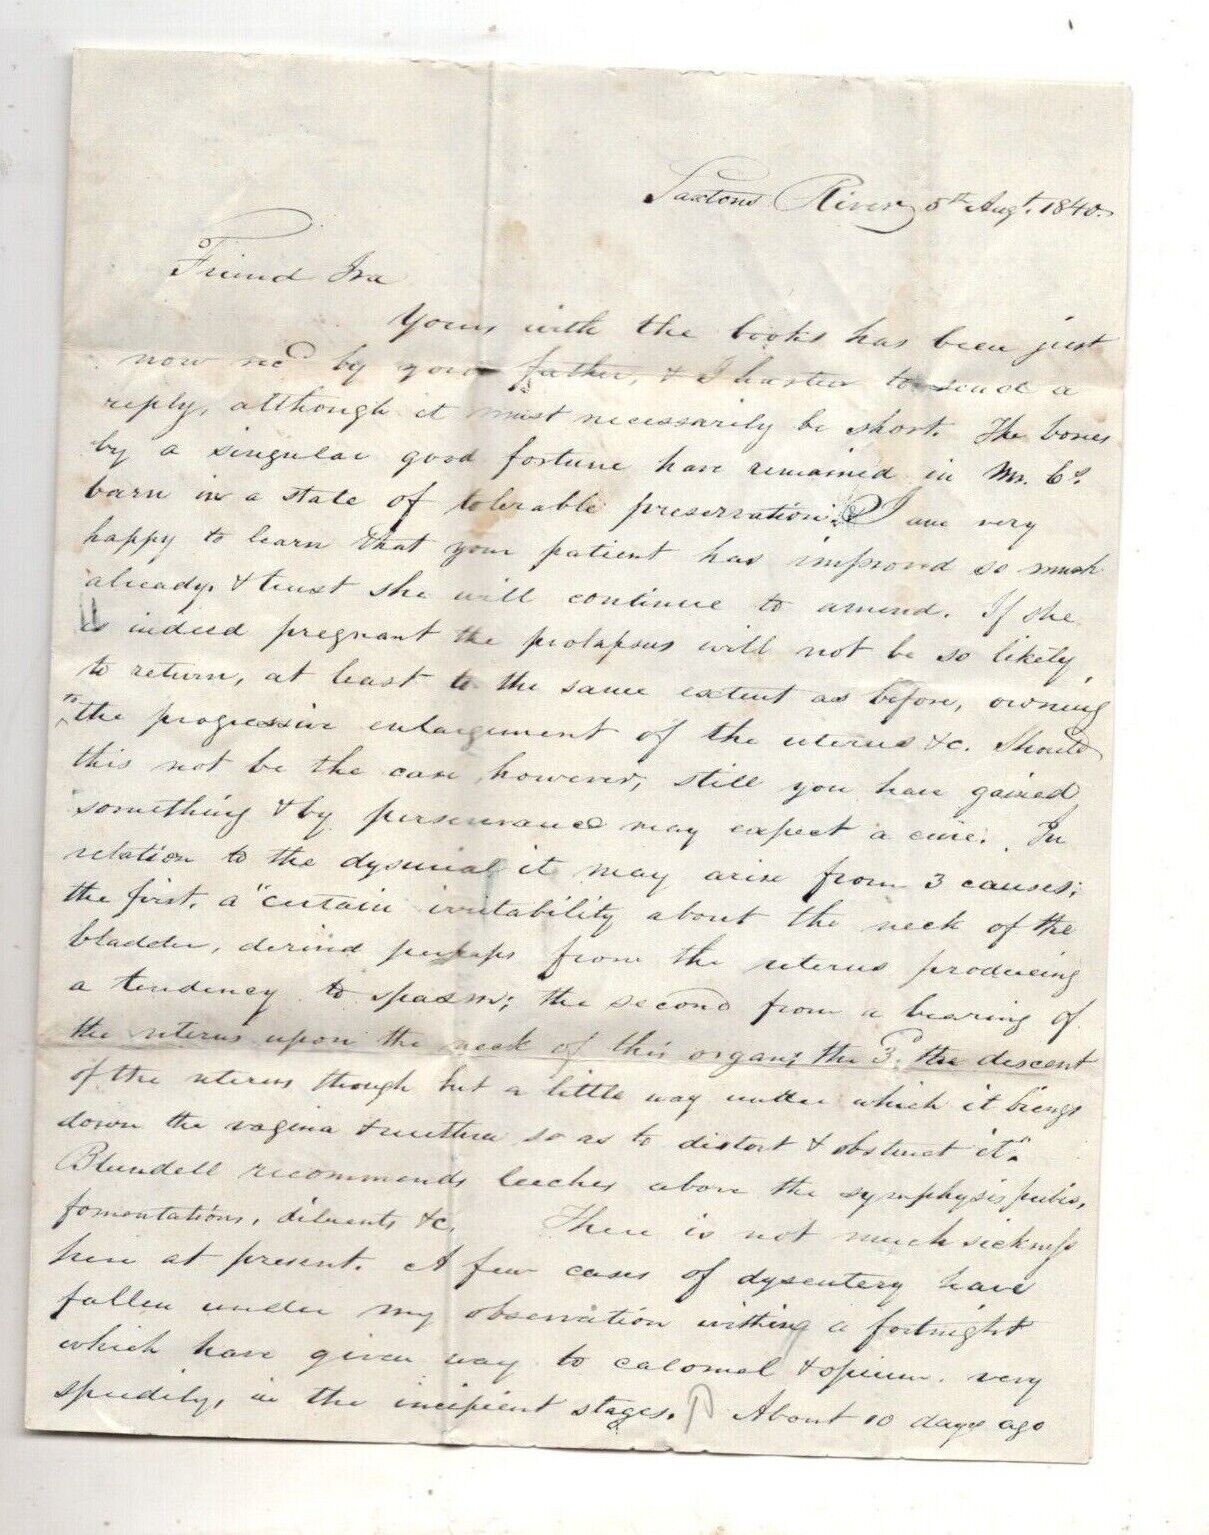 Saxtons River 5th Augt. 1840.
Friend Ira
Yours with the books has been just
now recd by your father, & I hasten to send a
reply, although it must necessarily be short. The bones
by a singular good fortune have remained in Mr. C's.
barn in a state of tolerable preservation. I am very
happy to learn that your patient has improved so much
already, & trust she will continue to amend. If she
is indeed pregnant the prolapsus will not be so likely
to return, at least to the same extent as before, owning
to the progressive enlargement of the uterus &c. Should
this not be the case, however, still you have gained
something & by perseverance may expect a cure. In
relation to the dysuria it may arise from 3 causes;
the first, a "certain irritability about the neck of the
bladder, derived perhaps from the uterus producing
a tendency to spasm; the second from a bearing of
the uterus upon the neck of this organ; the 3d. the descent
of the uterus though but a little way under which it brings
down the vagina & urethra so as to distort & obstruct it."
Blundell recommends leeches above the symphysis pubis,
fomentations, diluents &c. There is not much sickness
here at present. A few cases of dysentery have
fallen under my observation within a fortnight
which have given way to calomel & opium very
speedily, in the incipient stages. About 10 days ago